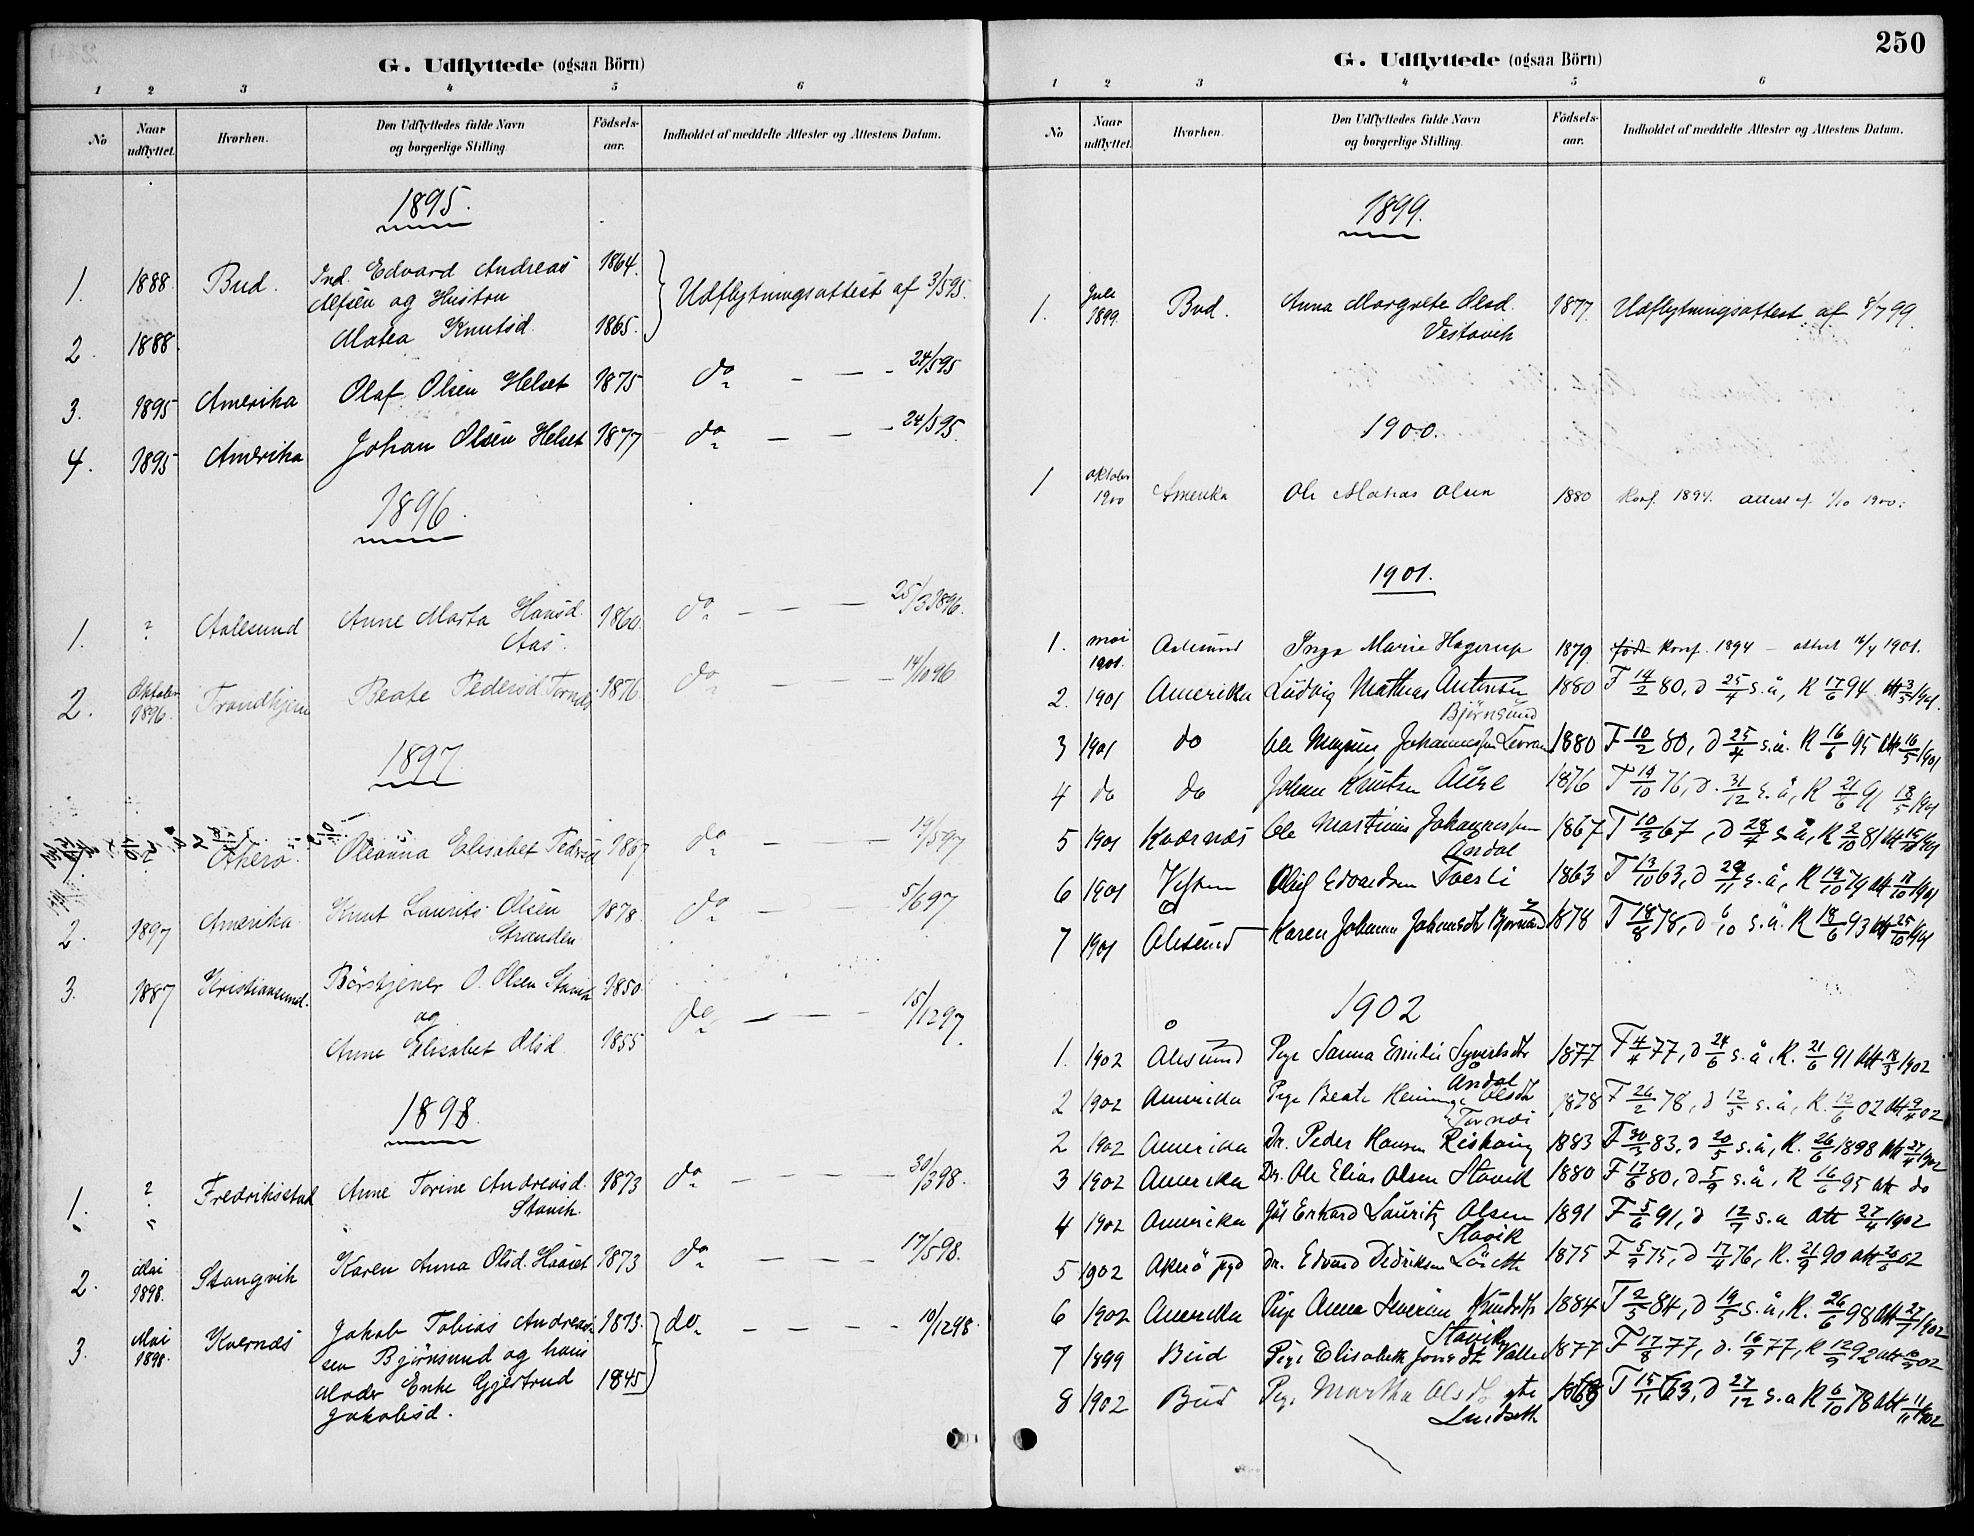 G. Udflyttede (ogsaa Börn)
1 2 3 4 5 6
No
Naar udflyttet.
Hvorhen.
Den Udflyttedes fulde Navn og borgerlige Stilling.
Födsels-aar.
Indholdet af meddelte Attester og Attestens Datum.
1895.
1. 1888. Bud. Ind. Edvard Andreas 1864. Udflytningsattest af 3/5 95.
Alfsen og Hustru
2. 1888. Matea Knutsd. 1865.
3. 1895 Amerika Olaf Olsen Helset 1875 do - - - 24/5 95
4. 1895 Amerika Johan Olsen Helset 1877 do - - - 24/5 95.
1896.
1. ? Aalesund Anne Marta Hansd. 1860. do - - - 25/3 1896.
Aas.
2. Oktober 1896. Trondhjem Beate Pedersd. Tornes 1876 do - - - 14/10 96
1897.
? Akerø. Oleanna Elisabet Pedersd 1867 do - - - 19/5 97
2. 1897 Amerika Knut Laurits Olsen 1878. do - - - 5/6 97
Stranden
3. 1887 Kristiansund. Börstjener O. Olsen Stavik 1850
og do - - - 15/12 97.
Anne Elisabet Olsd. 1855
1898.
1. ? Fredriksstad Anne Torine Andreasd. 1873 do - - - 30/3 98.
Stavik.
2. Mai 1898. Stangvik Karen Anna Olsd. Haaset 1873 do - - - 17/5 98.
3. Mai 1898. Kvernes Jakob Tobias Andrea- 1873. do. - - - - 10/12 98.
sen Björnsund og hans
Moder Enke Gjertrud 1845
Jakobsd.
250
G. Udflyttede (ogsaa Börn)
1 2 3 4 5 6
No
Naar udflyttet.
Hvorhen.
Den Udflyttedes fulde Navn og borgerlige Stilling.
Födsels-aar.
Indholdet af meddelte Attester og Attestens Datum.
1899.
1. Juli 1899. Bud. Anna Margrete Olsd. 1877. Udflytningsattest af 8/7 99.
Vestavik
1900.
1 oktober 1900 Amerika Ole Mathias Olsen 1880 Konf. 1894. attest af 1/10 1900.
1901.
1. mai 1901. Aalesund Inga Marie Hagerup 1879. Konf. 1894 - attest 16/4 1901.
2. 1901 Amerika Ludvig Mathias Antonsen 1880 F 14/2 80, d 25/4 s.å, K 17/6 94 Att 3/5 1901.
Bjørnsund
3 1901 do Ole Magnus Johannessen 1880 F 10/2 80, d 25/4 s.å. K 16/6 95 Att 16/5 1901
4 do do Johan Knutsen Aure 1876 F 19/10 76, d. 31/12 s.å, K 21/6 91 18/5 1901
5 1901 Kværnæs Ole Martinus Johannessen 1867 F 10/3 67, d 28/7 s.å, K 2/10 81 Att 15/10 1901
Årdal
6 1901 Edvardsen 1863 F 13/10 63, d 29/11 s.å, K 19/10 79 Att 18/10 1901
7 1901 Ålesund Karen Johanna Johansdtr Bjørnsund 1878 F 18/8 78, d 6/10 s.å. K 18/6 93 Att 25/10 1901
1902
1. 1902 Ålesund Pige Sanna Emilie Syvertsdtr 1877 F 4/4 77, d 24/6 s.å, K. 21/6 91 Att 18/3 1902
Årdal
2 1902 Amerika Pige Beate Olsdtr 1878 F 26/2 78, d 12/5 s.å, K. 12/6 02 Att 9/4 02
Tornes
2 1902 Amerika Dr. Peder Hansen 1883 F 30/3 83, d 20/5 s.å, K. 26/6 1898 Att 27/4 1902
3 1902 Amerika Dr. Ole Elias Olsen Stavik 1880 F 17/6 80, d 5/9 s.å, K 16/6 95 Att do
4 1902 Amerika Erhard Lauritz Olsen 1891 F 5/6 91, d 12/7 s.a Att 27/4 1902
Stavik
5 1902 Akerö pgd Dr. Edvard Didriksen 1875 F 5/9 75, d 17/4 76, K. 21/9 90 Att 20/6 02
6 1902 Amerika Pige Anna Severine Knudsdtr 1884 F 2/3 84, d 19/5 s.å, K. 26/6 98 Att 27/7 1902
Stavik
7 1899 Bud Pige Elisabeth Jonsdtr 1877 F 17/8 77, d. 16/9 77, K 12/9 92 Att 02
8 1902 Bud Pige Martha Olsdtr F 15/11 63, d 27/12 s.a K 6/10 78 Att 11/11 1902